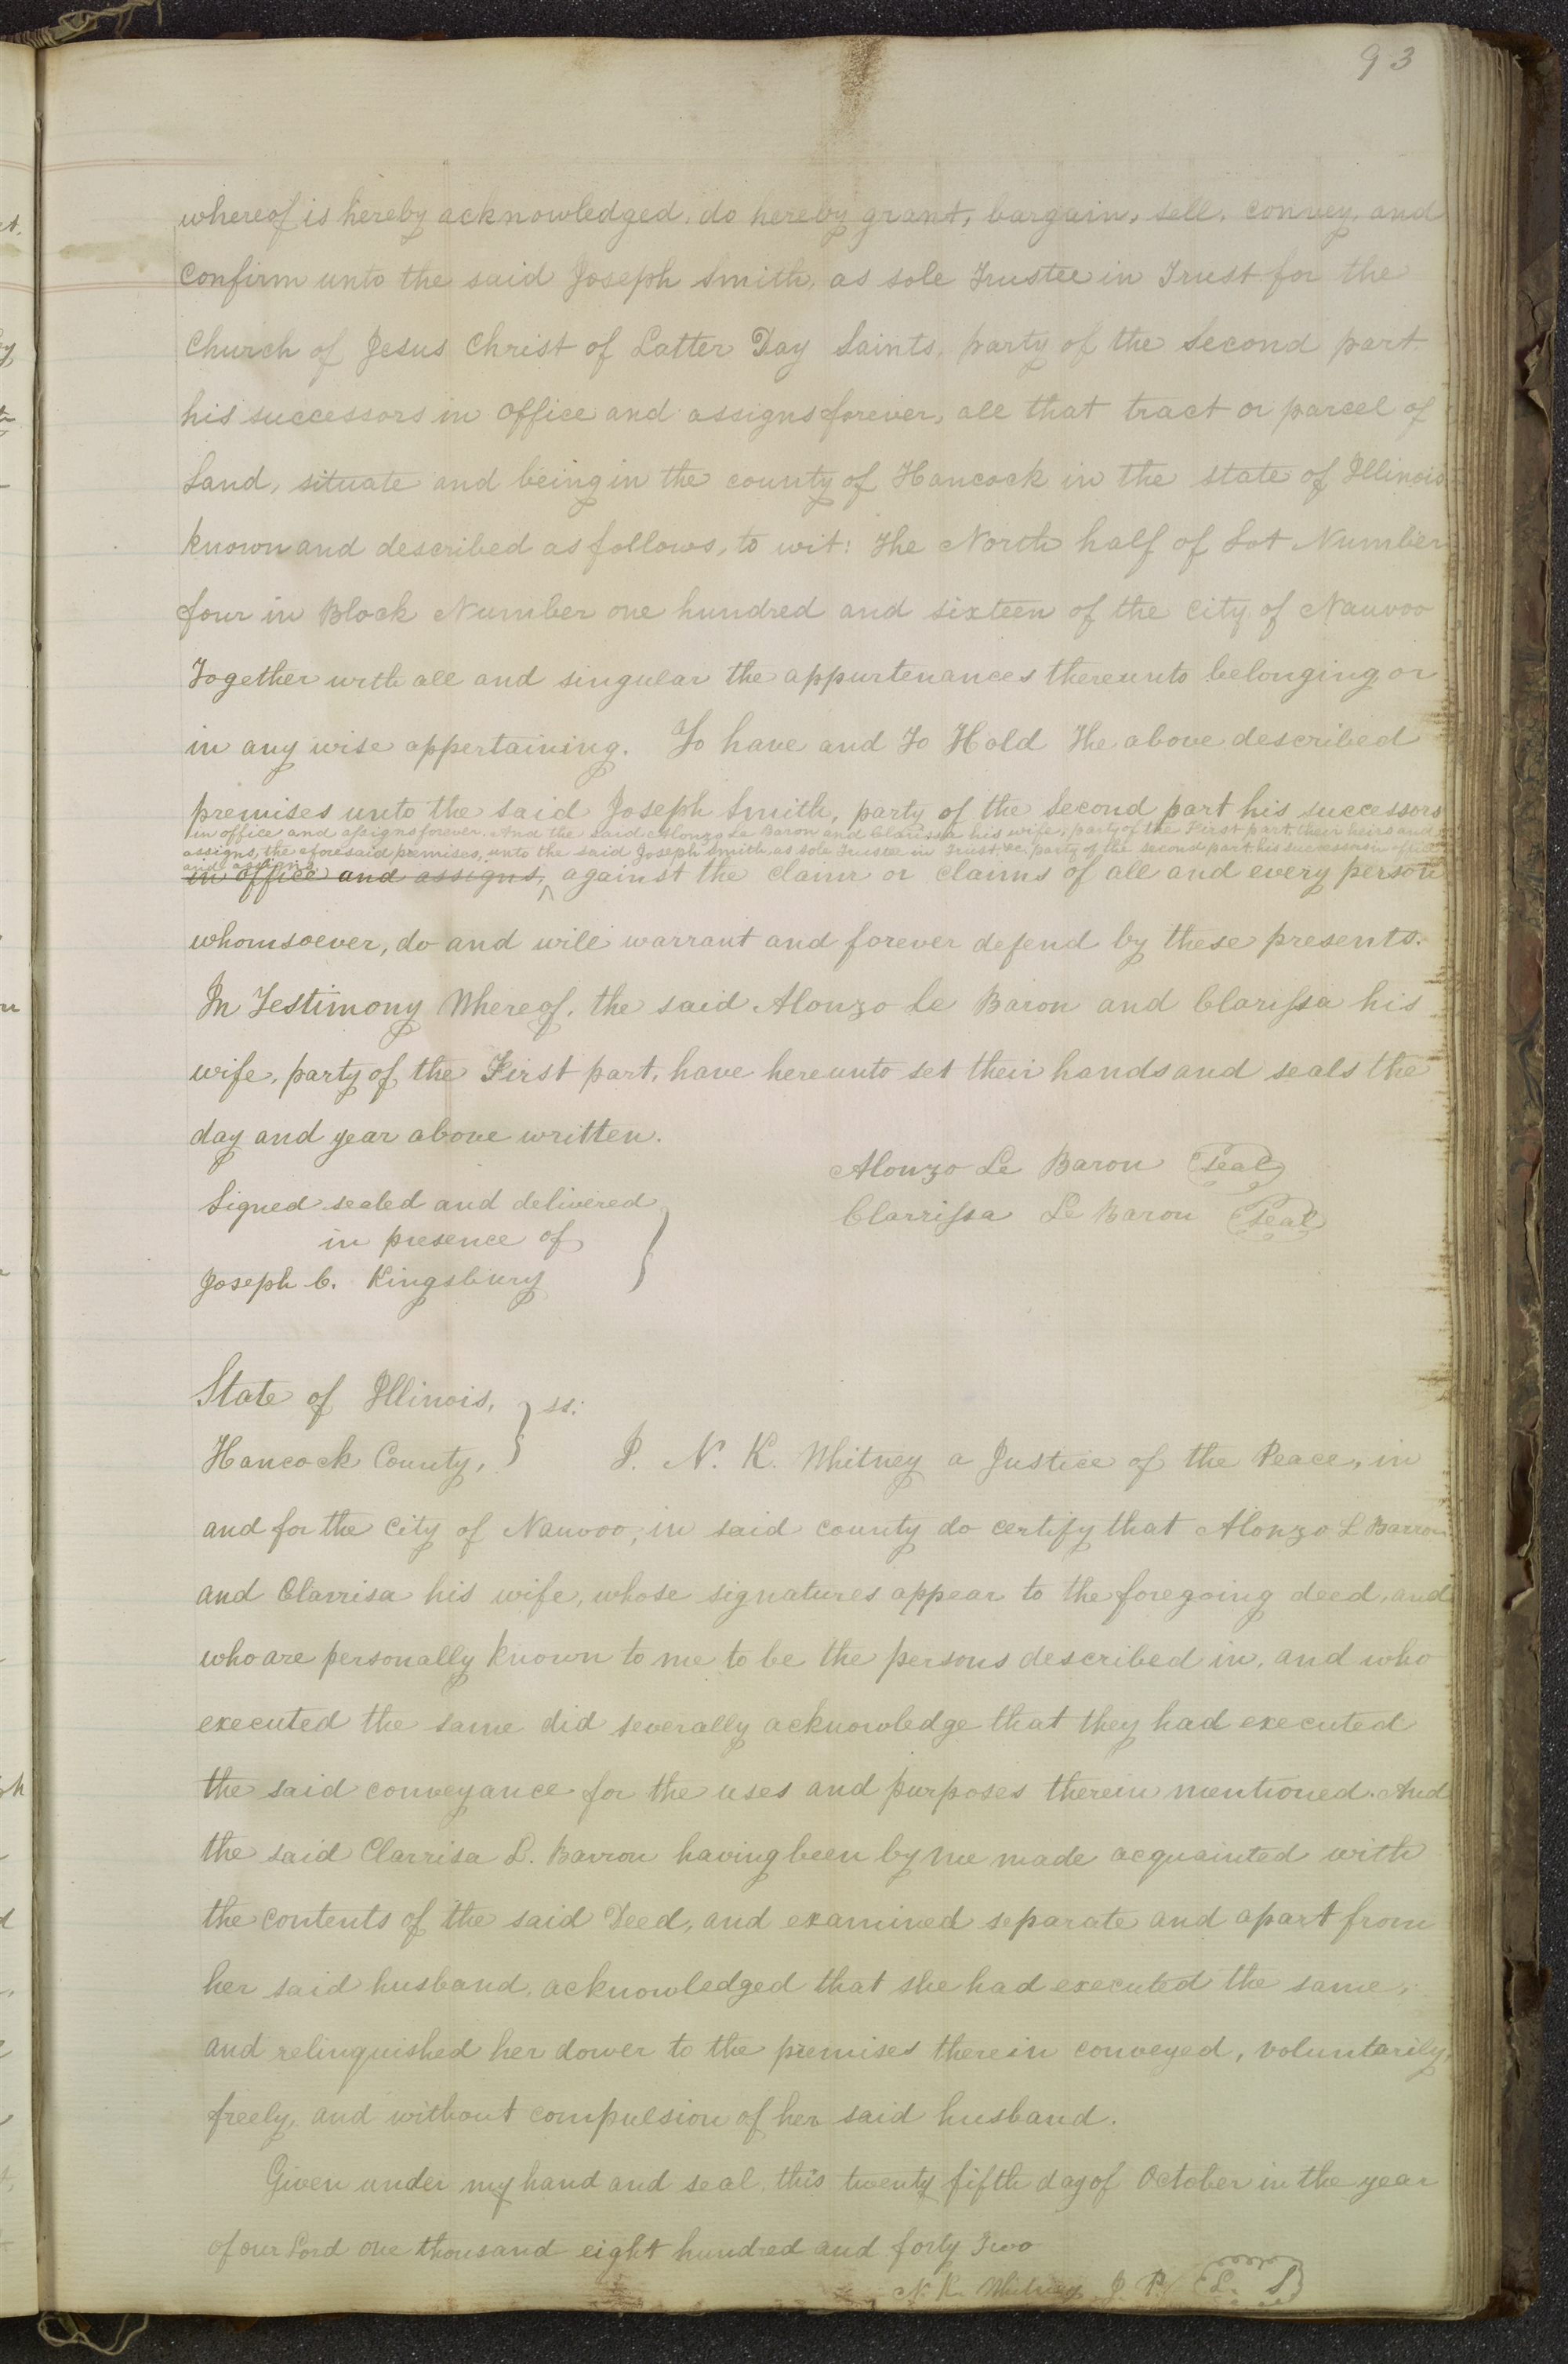 93
whereof is hereby acknowledged, do hereby grant, bargain, sell, convey, and
confirm unto the said Joseph Smith, as sole Trustee in Trust for the
Church of Jesus Christ of Latter Day Saints, party of the second part
his successors in office and assigns forever, all that tract or parcel of
Land, situate and being in the county of Hancock in the state of Illinois
known and described as follows, to wit: The North half of Lot Number
four in Block Number one hundred and sixteen of the city of Nauvoo
Together with all and singular the appurtenances thereunto belonging or
in any wise appertaining. To have and To Hold The above described
premises unto the said Joseph Smith, party of the Second part his successors
in office and assigns forever. And the said Alonzo Le Baron and Clarissa his wife, party of the First part, their heirs and
assigns, the aforesaid premises, unto the said Joseph Smith, as sole Trustee in Trust, &c, party of the second part his successors in office
and assigns
in office and assigns, against the claim or claims of all and every person
whomsoever, do and will warrant and forever defend by these presents.
In Testimony Whereof, the said Alonzo Le Baron and Clarissa his
wife, party of the First part, have hereunto set their hands and seals the
day and year above written.
Alonzo Le Baron Seal
Clarrissa Le Baron Seal
Signed sealed and delivered
in presence of
Joseph C. Kingsbury
State of Illinois, } ss:
Hancock County, I. N. K. Whitney a Justice of the Peace, in
and for the City of Nauvoo, in said county do certify that Alonzo L Barron
and Clarrisa his wife, whose signatures appear to the foregoing deed, and
who are personally known to me to be the persons described in, and who
executed the same did severally acknowledge that they had executed
the said conveyance for the uses and purposes therein mentioned. And
the said Clarrisa L. Barron having been by me made acquainted with
the contents of the said Deed, and examined separate and apart from
her said husband, acknowledged that she had executed the same,
and relinquished her dower to the premises therein conveyed, voluntarily,
freely, and without compulsion of her said husband.
Given under my hand and seal, this twenty fifth day of October in the year
of our Lord one thousand eight hundred and forty Two
N. K. Whitney J. P. L. S